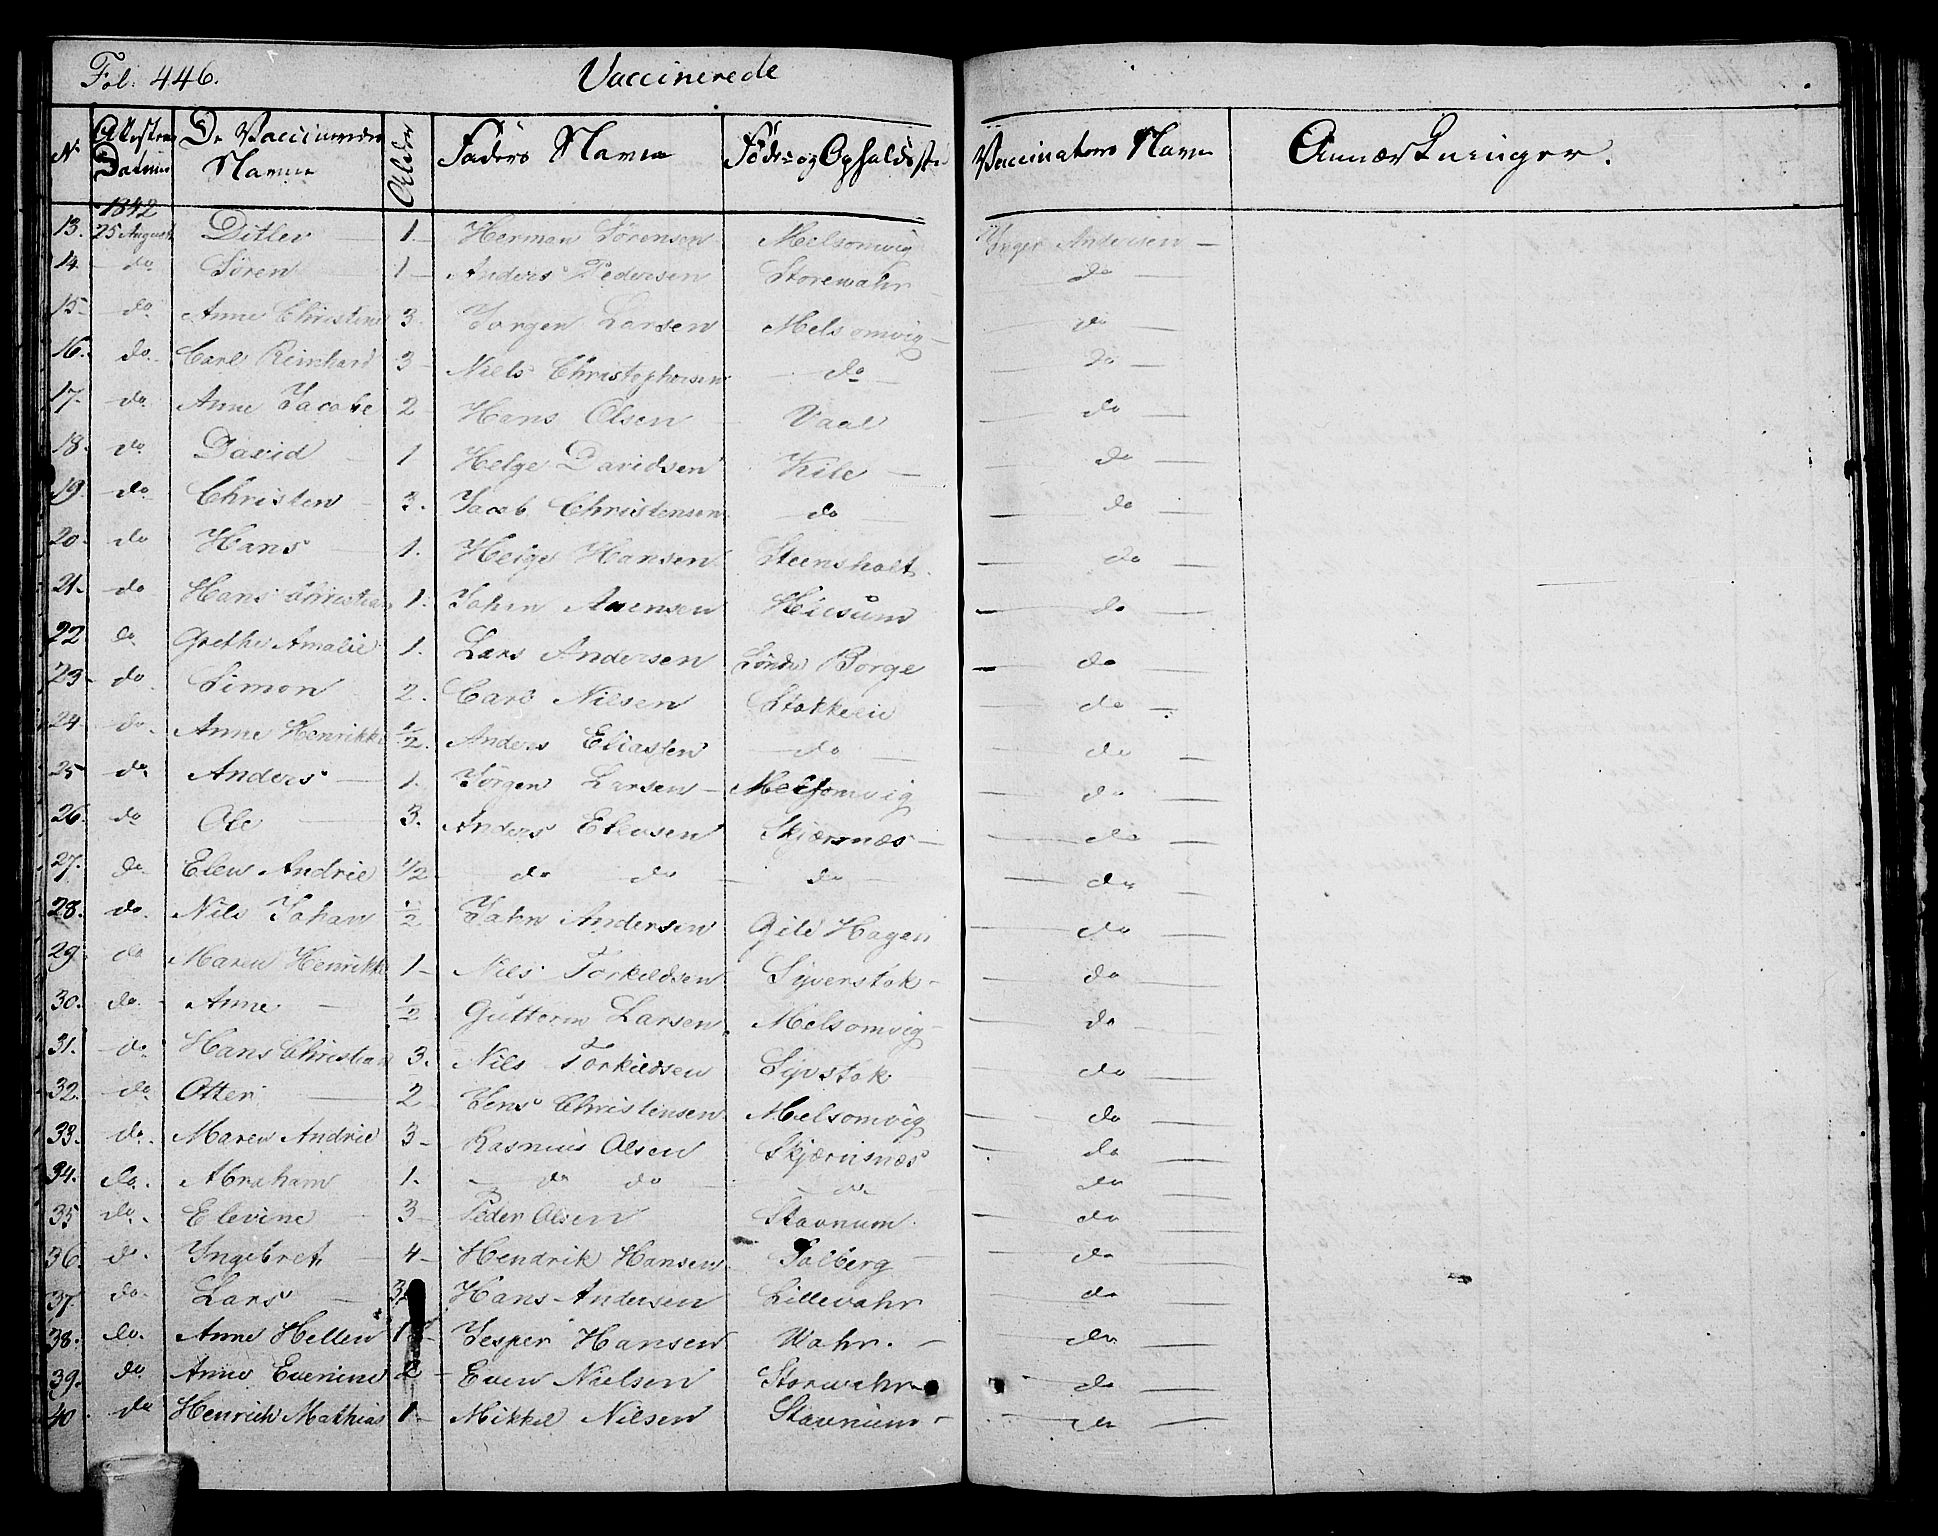 Fol. 446. Vaccinerede
N Attestens Datum De Vaccineredes Navne Alder Faders Navn Føde- og Opholdsste Vaccinators Navn Anmærkninger.
1842
13. 25 August Ditlev 1. Herman Sørensen Melsomvig Inger Andersen
14 do Søren 1 Anders Pedersen Storewahr do
15 do Anne Christine 3. Jørgen Larsen Melsomvig do
16. do. Carl Reinhard 3 Niels Christophersen do do
17. do Anne Jacobe 2 Hans Olsen Vaal do
18. do David 1 Helge Davidsen Kile do
19. do Christen 3. Jacob Christensen do do
20. do Hans 1. Helge Hansen Steensholt. do
21. do Hans Christian 1. John Hiesum do
22 do Grethe Amalie 1. Lars Andersen Borge do
23 do Simon 2. Carl Nilsen Stokkerie do
24 do. Anne Henrikke 1/2. Anders Eliasten do do
25 do Anders 1. Jørgen Larsen Melsomvig do
26. do Ole 3. Anders Elevsen Skjærsnæs do
27. do Elen Andrie 1/2 do do do do
28. do. Nils Johan 1/2 John Andersen Gile Hagen do
29 do Maren Henrikke 1 Nils Torkildsen Syverstok do
30. do. Anne 1/2 Guttorm Larsen Melsomvig do
31. do Hans Christian 3. Nils Torkildsen Syvstok do
32. do Otter 2 Jens Christensen Melsomvig do
33. do. Maren Andrie 3 Rasmus Olsen Skjærnsnæs do
34. do. Abraham 1. do do do do
35 do. Elevine 3 Peder Olsen Stavnum. do
36. do. Ingebret 4 Hendrik Hansen Solberg do
37. do. Lars 3 Hans Andersen Lillevahr do
38. do. Anne Hellen 1 Jesper Hansen Wahr. do
39. do Anne Evenine 2 Even Nielsen Storwahr do
40 do Henrich Mathias 1. Mikkel Nilsen Stavnum do